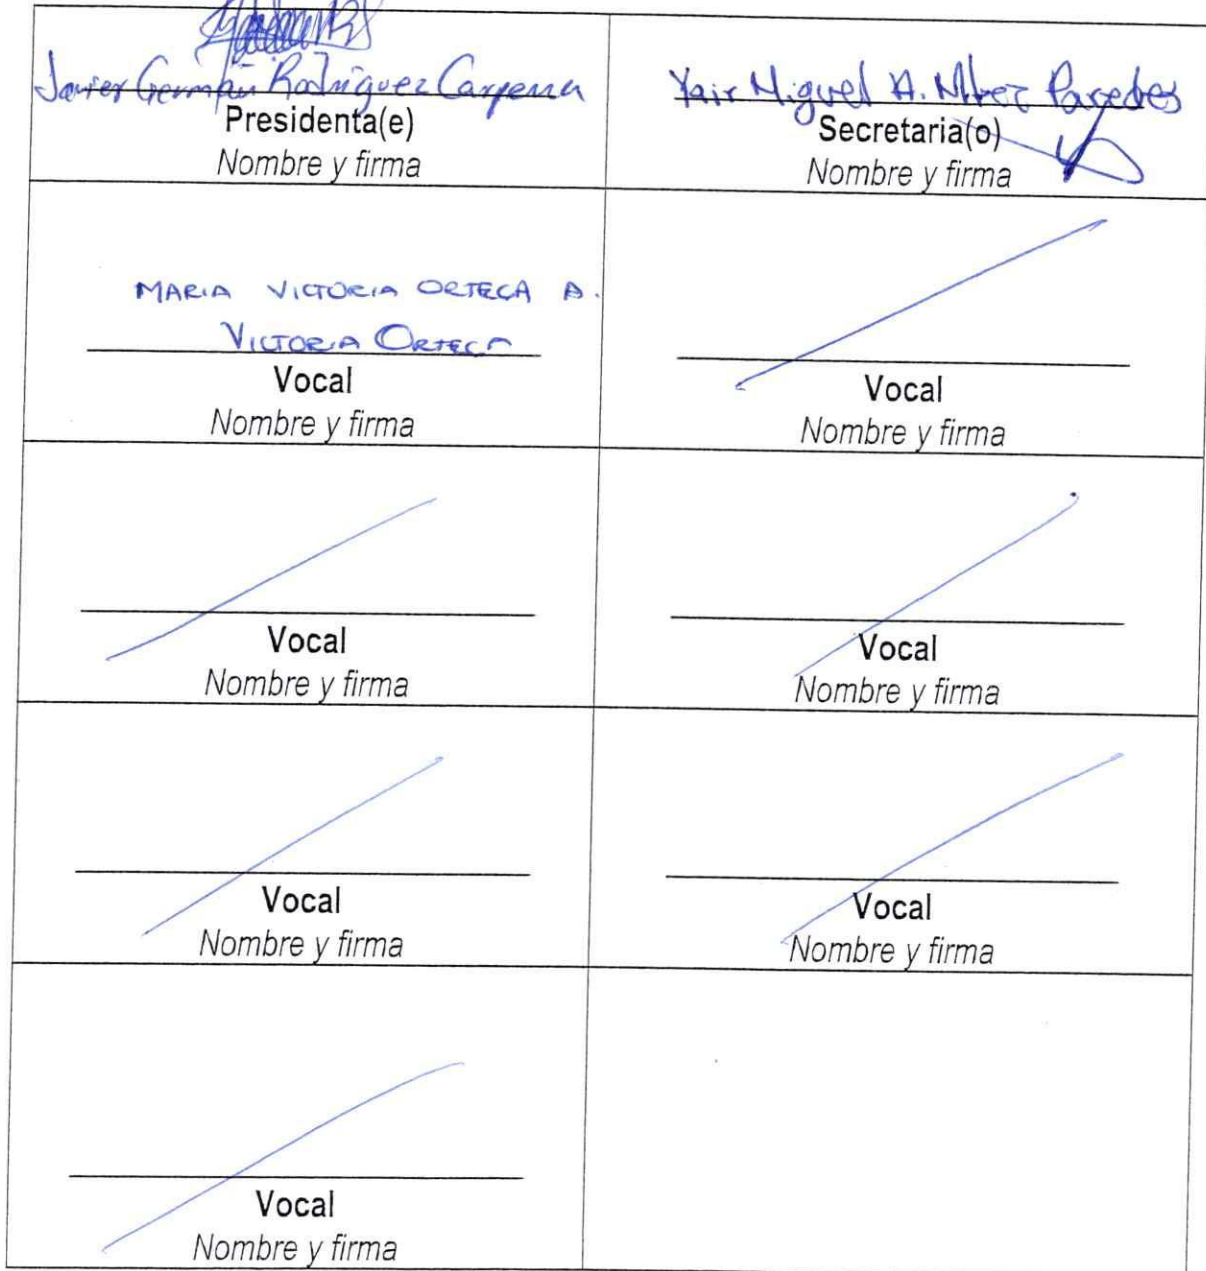 Javier Germán Rodríguez Carpena
Presidenta(e)
Nombre y firma
Yair Miguel A. Paredes
Secretaria(o)
Nombre y firma
MARIA VICTORIA ORTEGA A.
VICTORIA ORTEGA
Vocal
Nombre y firma
Vocal
Nombre y firma
Vocal
Nombre y firma
Vocal
Nombre y firma
Vocal
Nombre y firma
Vocal
Nombre y firma
Vocal
Nombre y firma